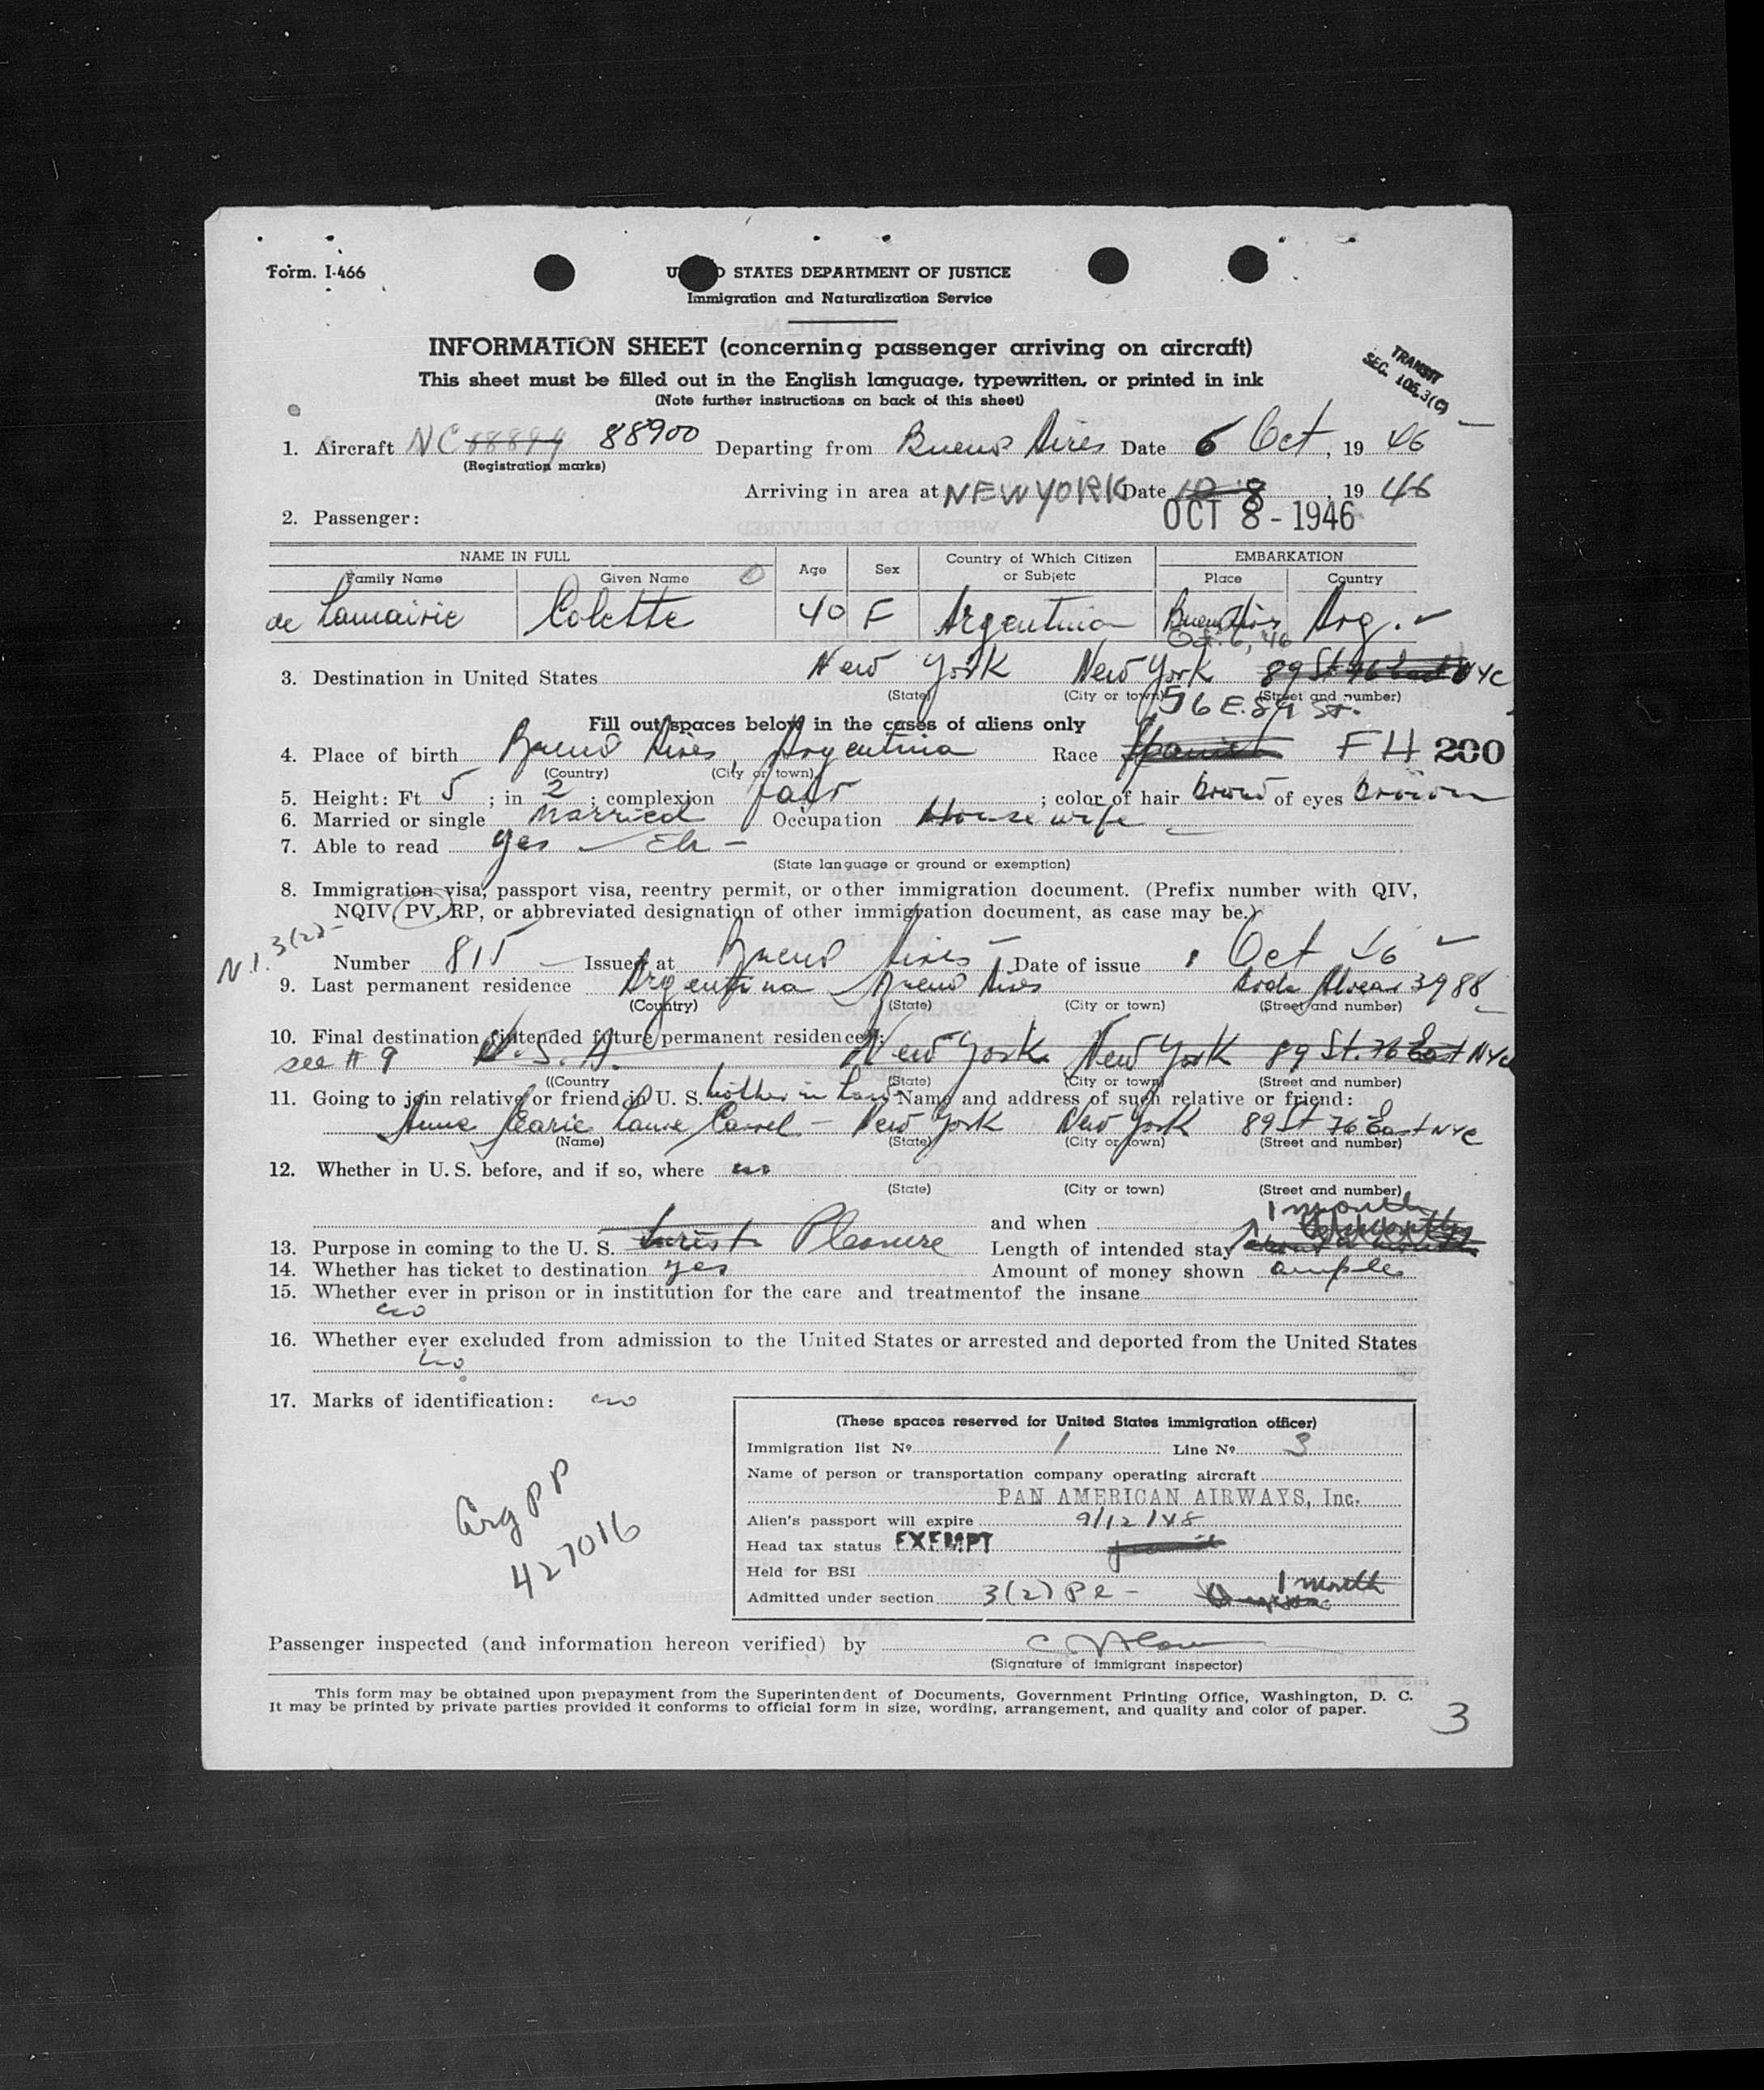 Form. I-466
U D STATES DEPARTMENT OF JUSTICE
Immigration and Naturalization Service
INFORMATION SHEET (concerning passenger arriving on aircraft)
This sheet must be filled out in the English language, typewritten, or printed in ink
(Note further instructions on back of this sheet)
TRANSIT
SEC. 105.3(C)
1. Aircraft NC 88899 88900 Departing from Buenos Aires Date 6 Oct, 19 46
(Registration marks)
Arriving in area at NEW YORK Date 10 8, 19 46
OCT 8 - 1946
2. Passenger:
NAME IN FULL Age Sex Country of Which Citizen or Subjetc EMBARKATION
Family Name Given Name Place Country
de Lamairie Colette 40 F Argentina Buenos Aires Arg.
Oct. 6, '46
3. Destination in United States New York New York 89 St 76 East NYC
(State) (City or town) (Street and number)
76 E. 89 St.
Fill out spaces below in the cases of aliens only
4. Place of birth Buenos Aires Argentina Race Spanish FH 200
(Country) (City or town)
5. Height: Ft 5; in 2; complexion fair; color of hair brown of eyes brown
6. Married or single married Occupation Housewife
7. Able to read yes
(State language or ground or exemption)
8. Immigration visa, passport visa, reentry permit, or other immigration document. (Prefix number with QIV,
NQIV, PV, RP, or abbreviated designation of other immigration document, as case may be.)
N.I. 3(2)-
Number 815 Issued at Buenos Aires Date of issue 1 Oct 46
9. Last permanent residence Argentina Buenos Aires Alvear 3988
(Country) (State) (City or town) (Street and number)
10. Final destination (intended future permanent residence):
see # 9 U.S.A. New York New York 89 St. 76 East NYC
((Country (State) (City or town) (Street and number)
11. Going to join relative or friend in U. S. Mother in Law Name and address of such relative or friend:
Anne Marie Laure Carrel - New York New York 89 St 76 East NYC
(Name) (State) (City or town) (Street and number)
12. Whether in U. S. before, and if so, where no
(State) (City or town) (Street and number)
and when
1 month
13. Purpose in coming to the U. S. Turist Pleasure Length of intended stay
14. Whether has ticket to destination yes Amount of money shown ample
15. Whether ever in prison or in institution for the care and treatmentof the insane
no
16. Whether ever excluded from admission to the United States or arrested and deported from the United States
no
17. Marks of identification: no
Arg PP
427016
(These spaces reserved for United States immigration officer)
Immigration list No 1 Line No 3
Name of person or transportation company operating aircraft
PAN AMERICAN AIRWAYS, Inc.
Alien's passport will expire 9/12/48
Head tax status EXEMPT
Held for BSI
1 month
Admitted under section 3(2) P2 -
Passenger inspected (and information hereon verified) by
(Signature of immigrant inspector)
This form may be obtained upon prepayment from the Superintendent of Documents, Government Printing Office, Washington, D. C.
It may be printed by private parties provided it conforms to official form in size, wording, arrangement, and quality and color of paper.
3